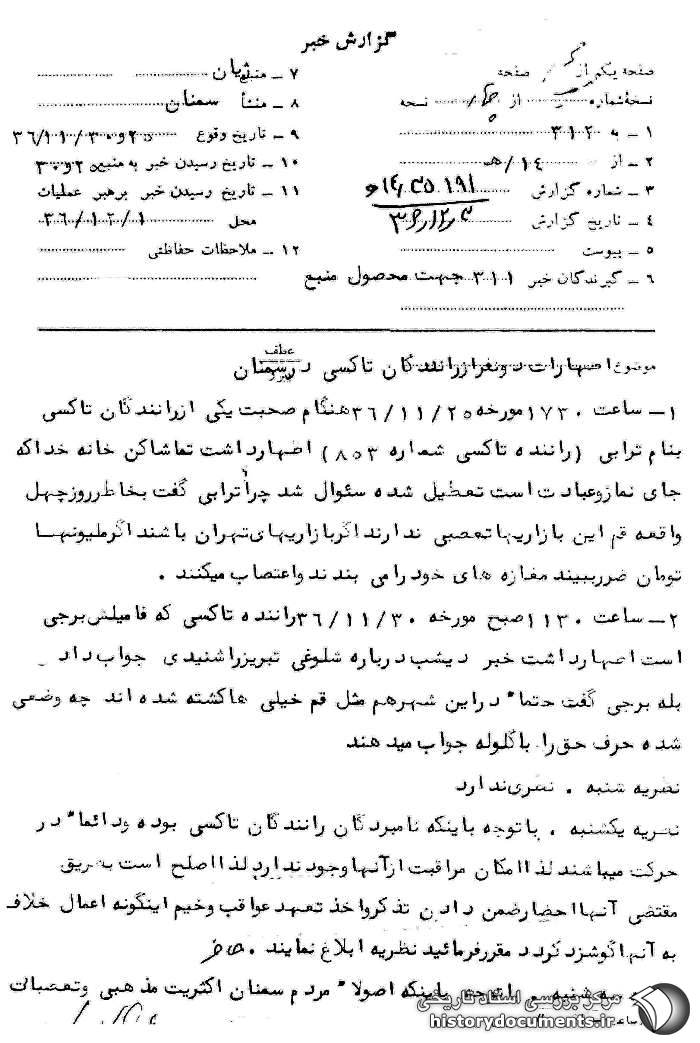 گزارش خبر
صفحه یکم از صفحه
نسخه شماره از نسخه
۱ – به ۳۱۲
۲ – از ۱۴/هـ
۳ – شماره گزارش
۴ – تاریخ گزارش
۵ – پیوست
۶ – گیرندگان خبر ۳۱۱ جهت محصول منبع
۷ – منبع
۸ – منشأ سمنان
۹ – تاریخ وقوع ۲۵و۳۶/۱۱/۳۰
۱۰ – تاریخ رسیدن خبر به منبع ۲۵و۳۰
۱۱ – تاریخ رسیدن خبر برهبر عملیات
محل ۳۶/۱۲/۱
۱۲ – ملاحظات حفاظتی
عطف
موضوع اظهارات دونفر از رانندگان تاکسی در سمنان
۱ – ساعت ۱۷۳۰ مورخه ۳۶/۱۱/۲۵ هنگام صحبت یکی از رانندگان تاکسی
بنام ترابی (راننده تاکسی شماره ۸۰۳) اظهار داشت تماشاکن خانه خدا که
جای نماز و عبادت است تعطیل شده سئوال شد چرا ترابی گفت بخاطر روز چهل
واقعه قم این بازاریها تعصبی ندارند اگر بازاریهای تهران باشند اگر ملیونها
تومان ضرر ببیند مغازه های خود را می بندند و اعتصاب میکنند .
۲ – ساعت ۱۱۳۰ صبح مورخه ۳۶/۱۱/۳۰ راننده تاکسی که فامیلش برجی
است اظهار داشت خبر دیشب درباره شلوغی تبریز را شنیدی جواب داد
بله برجی گفت حتما" در این شهر هم مثل قم خیلی ها کشته شده اند چه وضعی
شده حرف حق را با گلوله جواب میدهند
نظریه شنبه . نظری ندارد
نظریه یکشنبه . با توجه باینکه نامبردگان رانندگان تاکسی بوده و دائما" در
حرکت میباشند لذا امکان مراقبت از آنها وجود ندارد لذا اصلح است بطریق
مقتضی آنها احضار ضمن دادن تذکر و اخذ تعهد عواقب وخیم اینگونه اعمال خلاف
به آنها گوشزد گردد مقرر فرمائید نظریه ابلاغ نمایند .
شنبه با توجه باینکه اصولا" مردم سمنان اکثریت مذهبی و تعصبات
مرکز بررسی اسناد تاریخی
historydocuments.ir